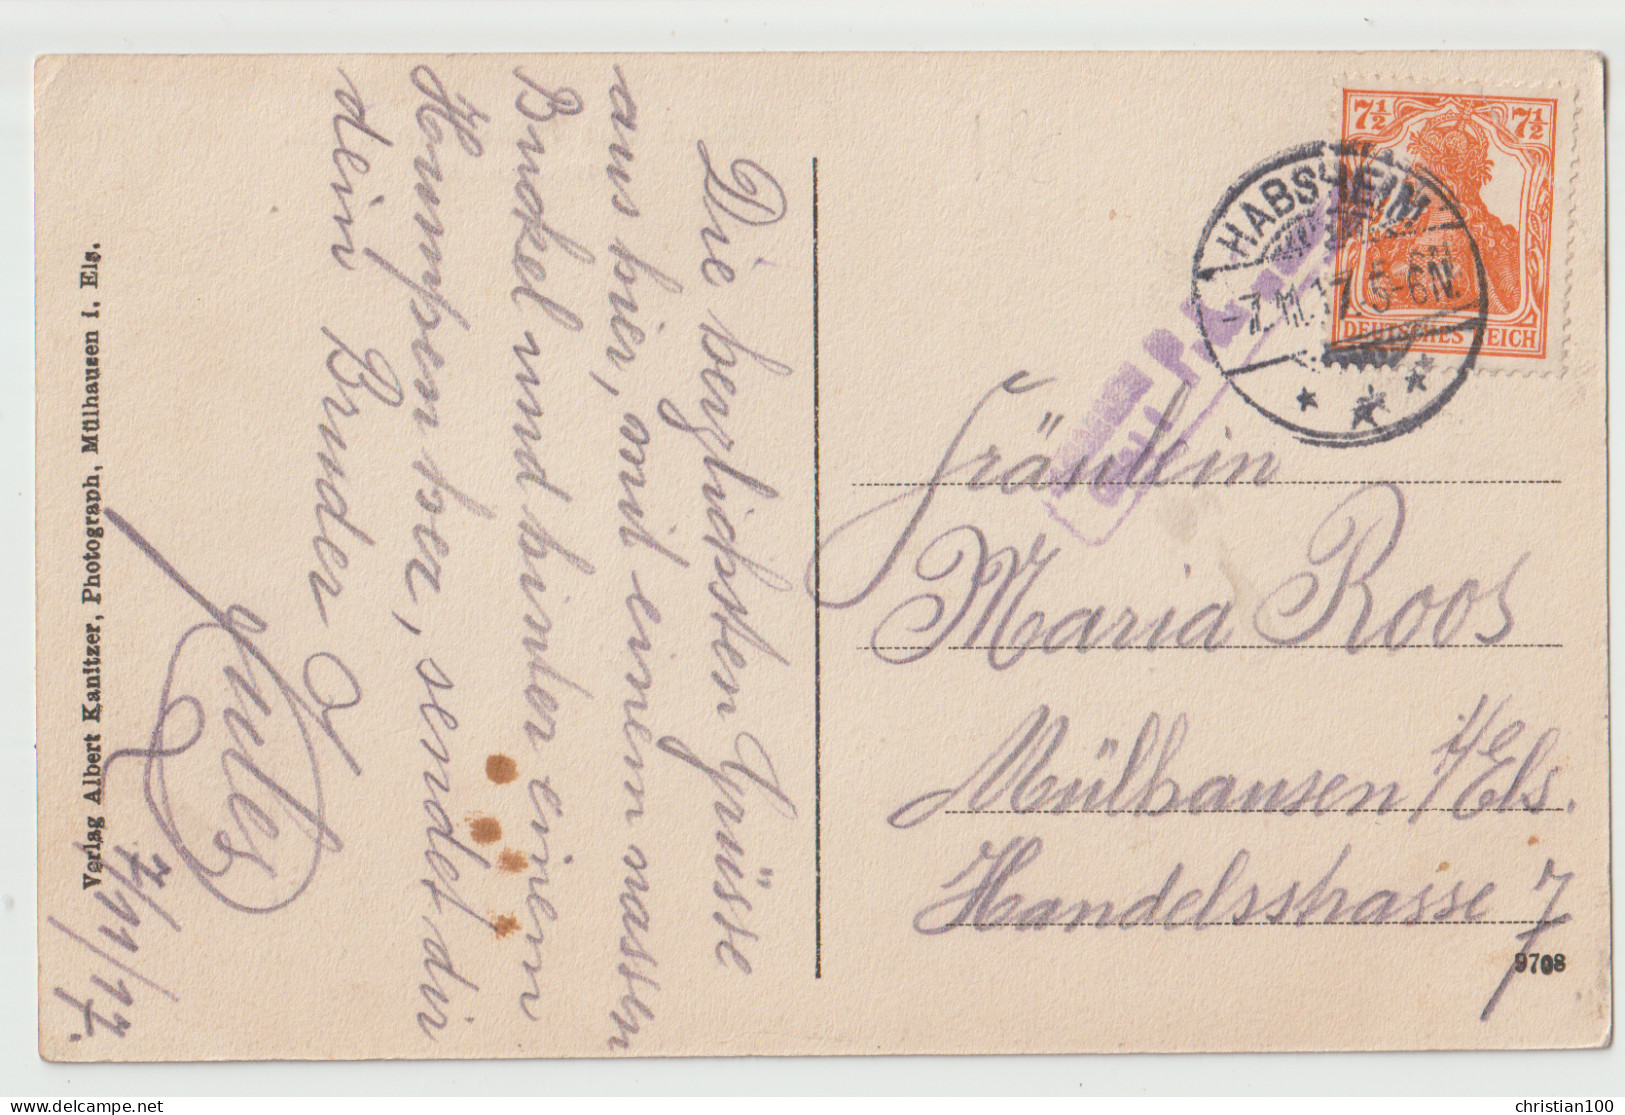 Die herzlichsten Grüsse
aus hier, mit einem nassen
Buckel und hinter einem
Humpen her, sendet dir
dein Bruder
Jules
7/11/17.
Verlag Albert Kanitzer, Photograph, Mülhausen i. Els.
7½ 7½
DEUTSCHES REICH
HABSHEIM
-7.11.17. 5-6N.
Fräulein
Maria Roos
Mülhausen i/e Els.
Handelsstrasse 7
9708
christian100